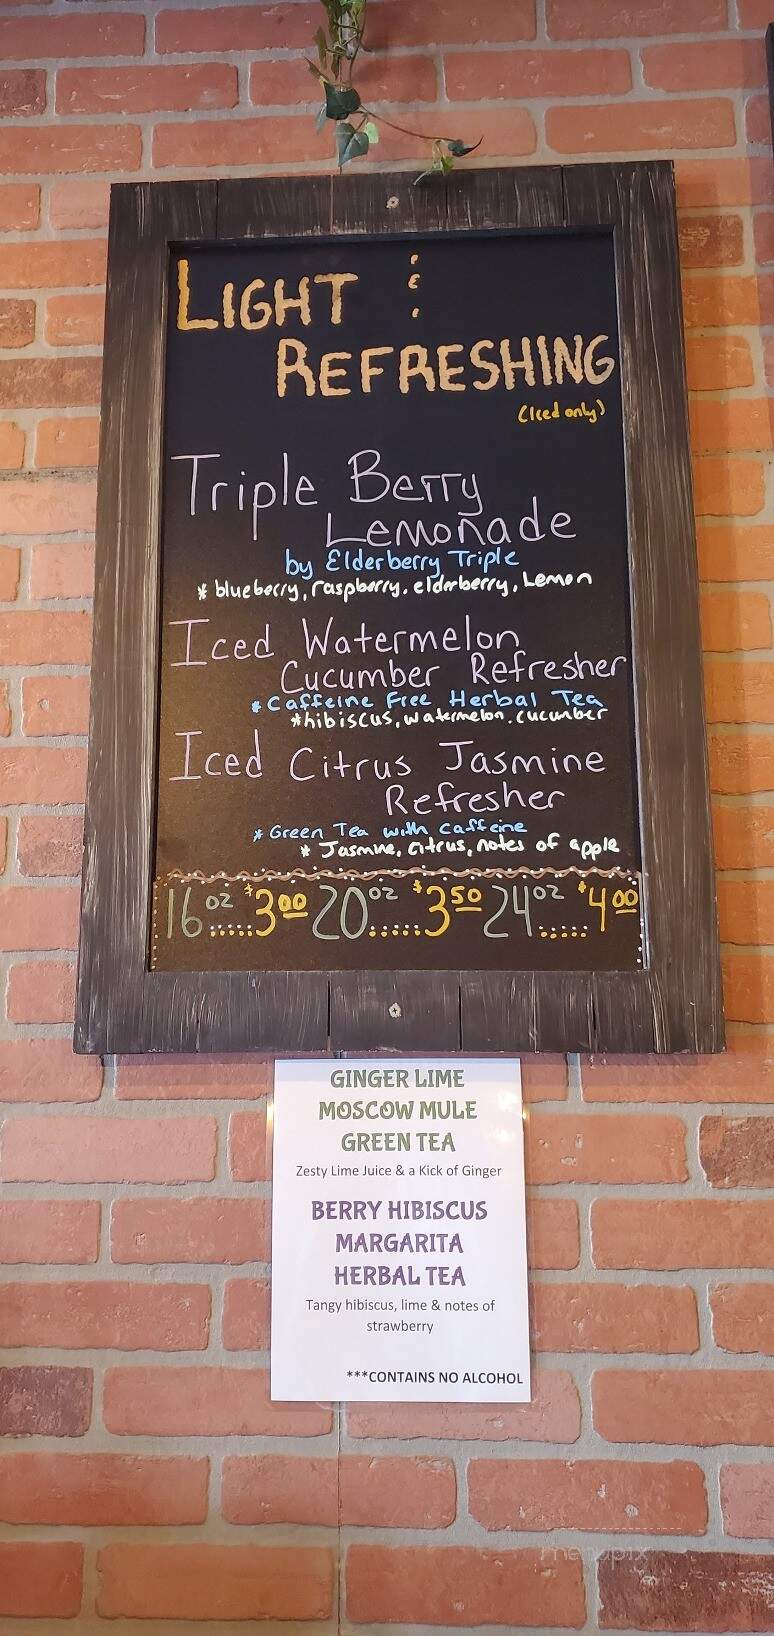 LIGHT &
REFRESHING
(Iced only)
Triple Berry
Lemonade
by Elderberry Triple
* blueberry, raspberry, elderberry, Lemon
Iced Watermelon
Cucumber Refresher
* Caffeine Free Herbal Tea
* hibiscus, watermelon, cucumber
Iced Citrus Jasmine
Refresher
* Green Tea with Caffeine
* Jasmine, citrus, notes of apple
16 oz ..... $3 00 20 oz ..... $3 50 24 oz ..... $4 00
GINGER LIME
MOSCOW MULE
GREEN TEA
Zesty Lime Juice & a Kick of Ginger
BERRY HIBISCUS
MARGARITA
HERBAL TEA
Tangy hibiscus, lime & notes of
strawberry
***CONTAINS NO ALCOHOL
menupix